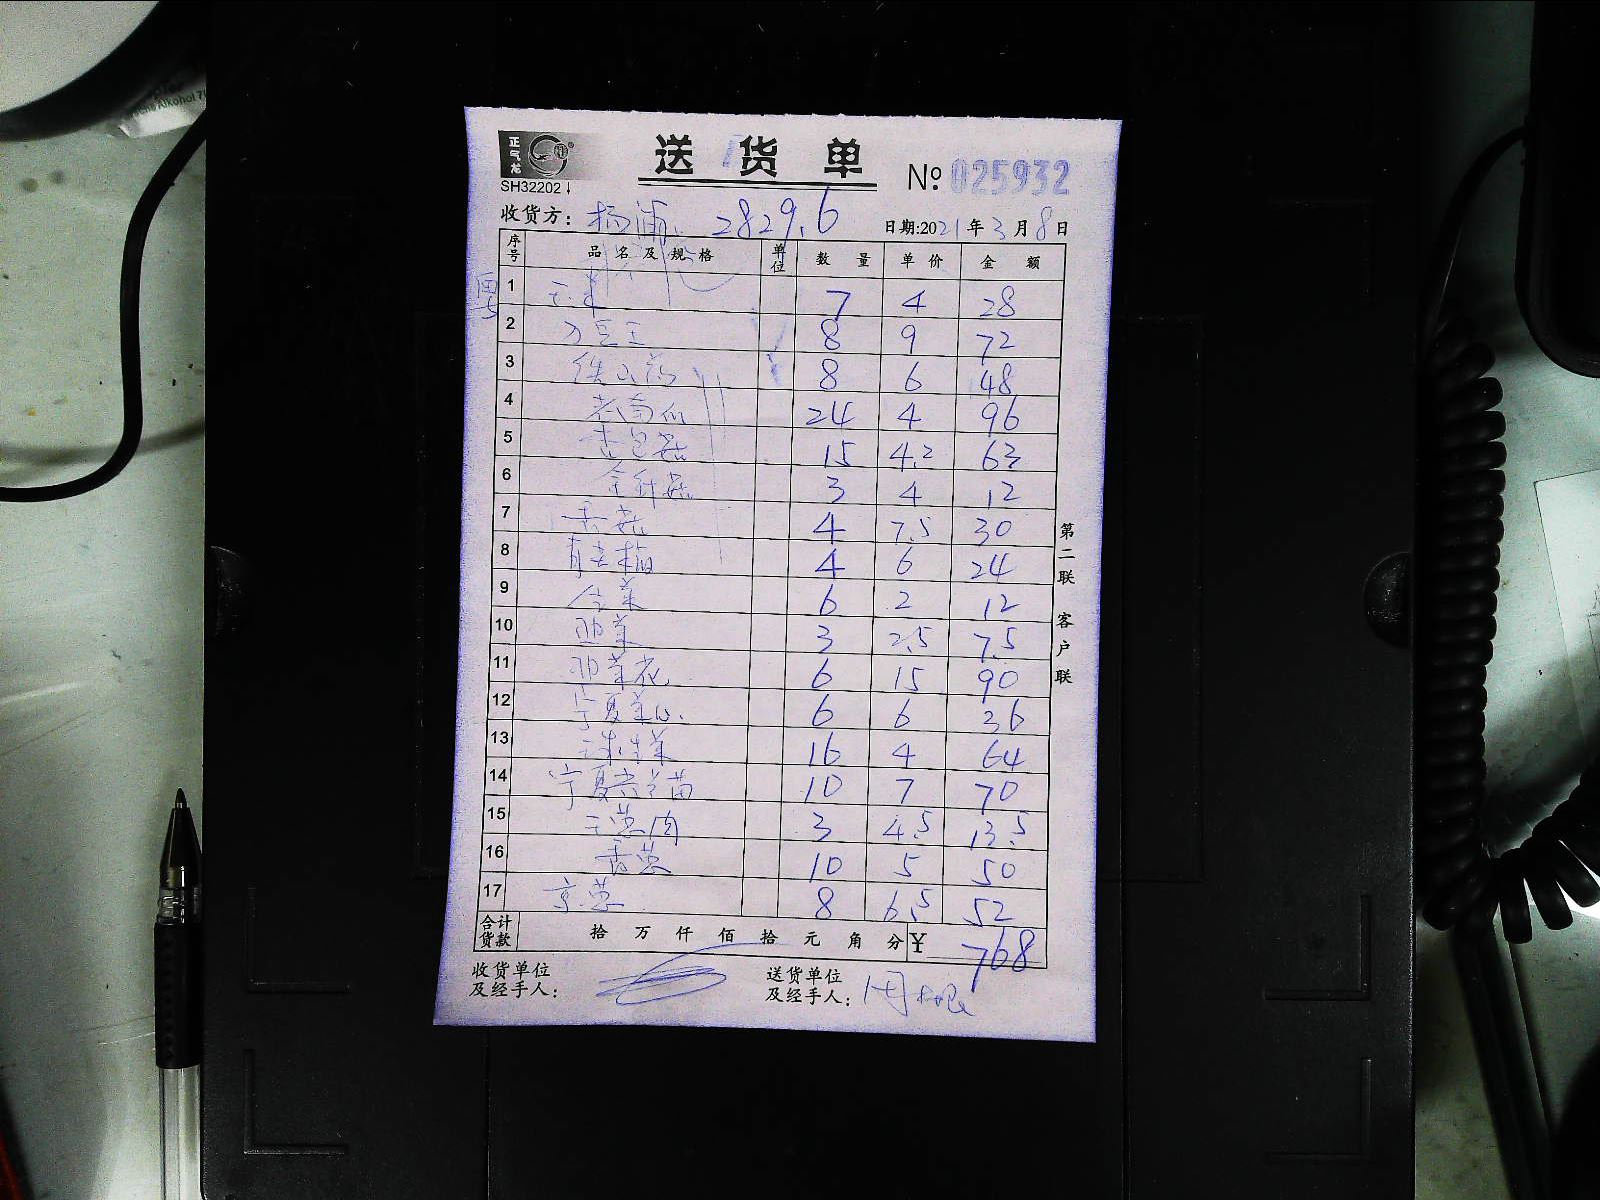 Alkohol 7
正气龙
送货单
SH32202
№ 025932
收货方: 杨浦 2829.6 日期:2021年3月8日
序号 品名及规格 单位 数量 单价 金额
1 玉米 7 4 28
2 刀豆王 8 9 72
3 铁山药 8 6 48
4 老南瓜 24 4 96
5 杏包菇 15 4.2 63
6 金针菇 3 4 12
7 香菇 4 7.5 30
8 6 24
9 6 2 12
10 3 2.5 7.5
11 6 15 90
12 宁夏菜心 6 6 36
13 16 4 64
14 宁夏 苗 10 7 70
15 3 4.5 13.5
16 香葱 10 5 50
17 京葱 8 6.5 52
合计货款 拾万仟佰拾元角分 ¥ 768
收货单位及经手人:
送货单位及经手人: 周
第二联 客户联